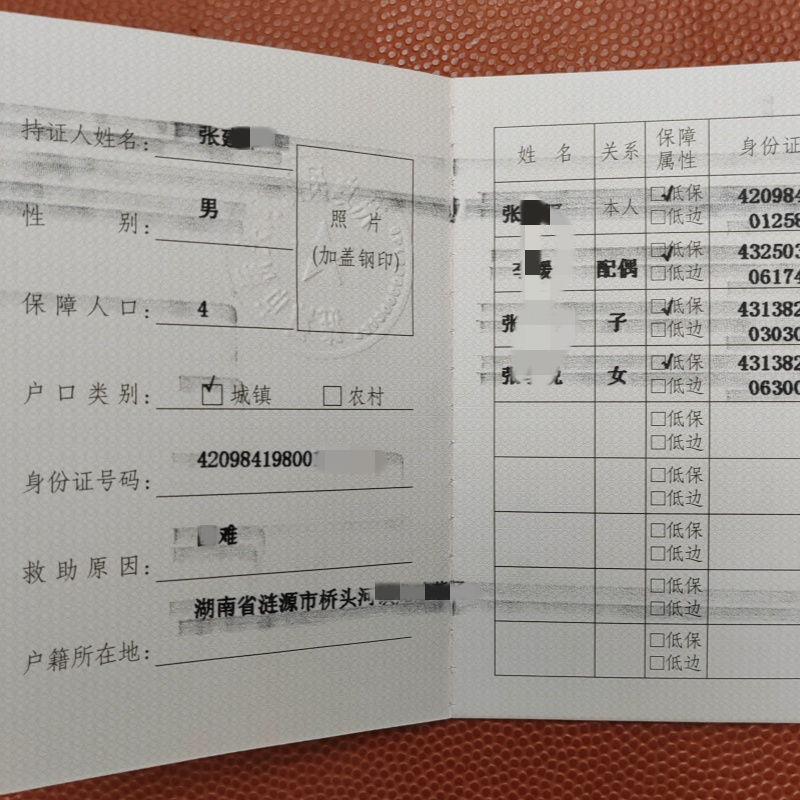 持证人姓名：张建
性别：男
照片
(加盖钢印)
保障人口：4
户口类别：√城镇 □农村
身份证号码：42098419800
救助原因：难
户籍所在地：湖南省涟源市桥头河
姓名 关系 保障属性 身份证
张 本人 √低保 420984
□低边 01258
媛 配偶 √低保 432503
□低边 06174
张 子 √低保 431382
□低边 03030
张 女 √低保 431382
□低边 06300
□低保
□低边
□低保
□低边
□低保
□低边
□低保
□低边
□低保
□低边